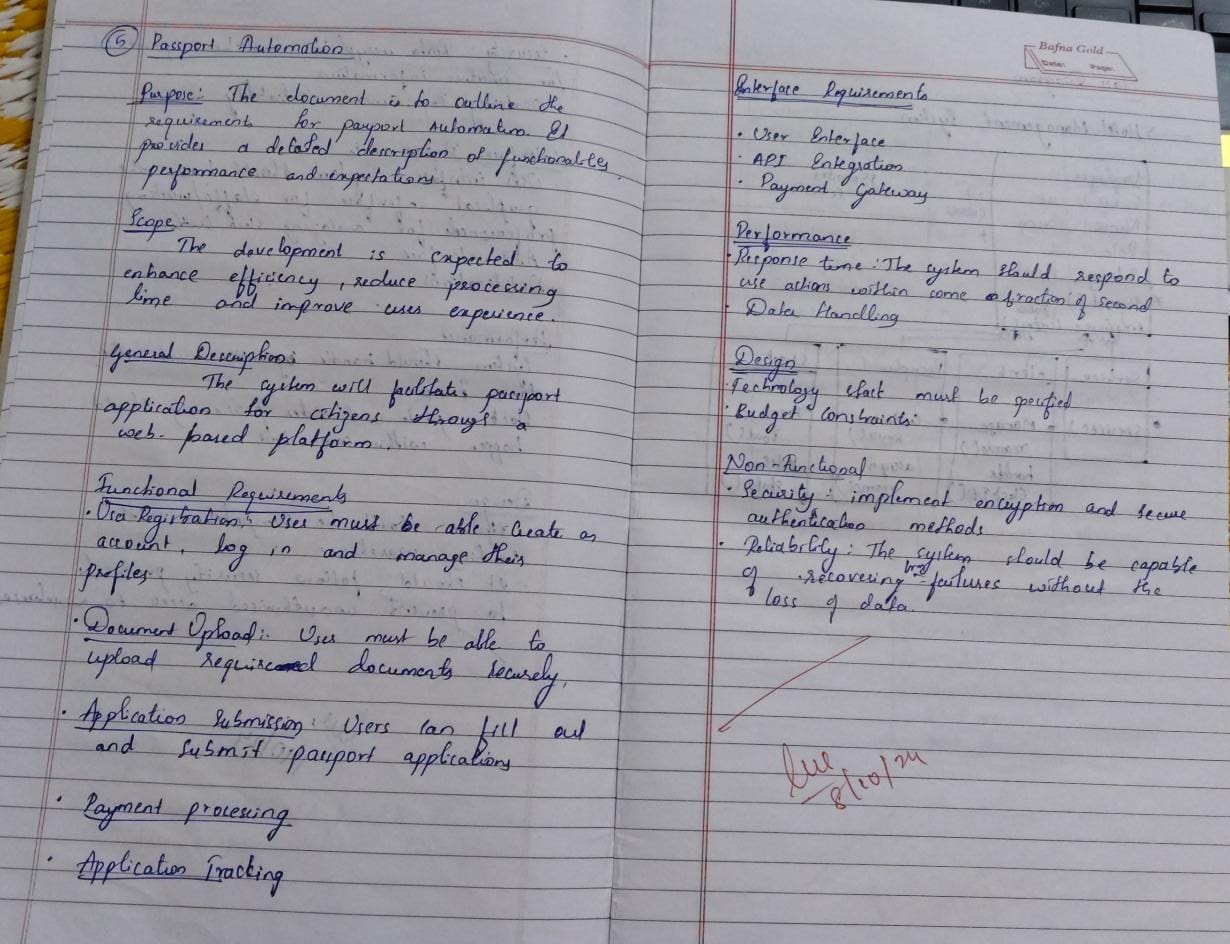 5 Passport Automation
Purpose: The document is to outline the
requirements for passport Automation. It
provides a detailed description of functionalites,
performance and expectations.
Scope:
The development is expected to
enhance efficiency, reduce processing
time and improve user experience.
General Description:
The system will facilitate passport
application for citizens through a
web-based platform.
Functional Requirements
• User Registration: User must be able: Create an
account, log in and manage their
profiles.
• Document Upload: User must be able to
upload required documents securely.
• Application Submission: Users can fill out
and submit passport applications
• Payment processing
• Application Tracking
Bafna Gold
Date: Page:
Interface Requirements
• User Interface
• API Integration
• Payment Gateway
Performance
• Response time: The system should respond to
use actions within some fraction of second
• Data Handling
Design
• Technology stack must be specified
• Budget constraints:
Non-Functional
• Security: implement encryption and secure
authentication methods
• Reliability: The system should be capable
of recovering from failures without the
loss of data.
8/10/24